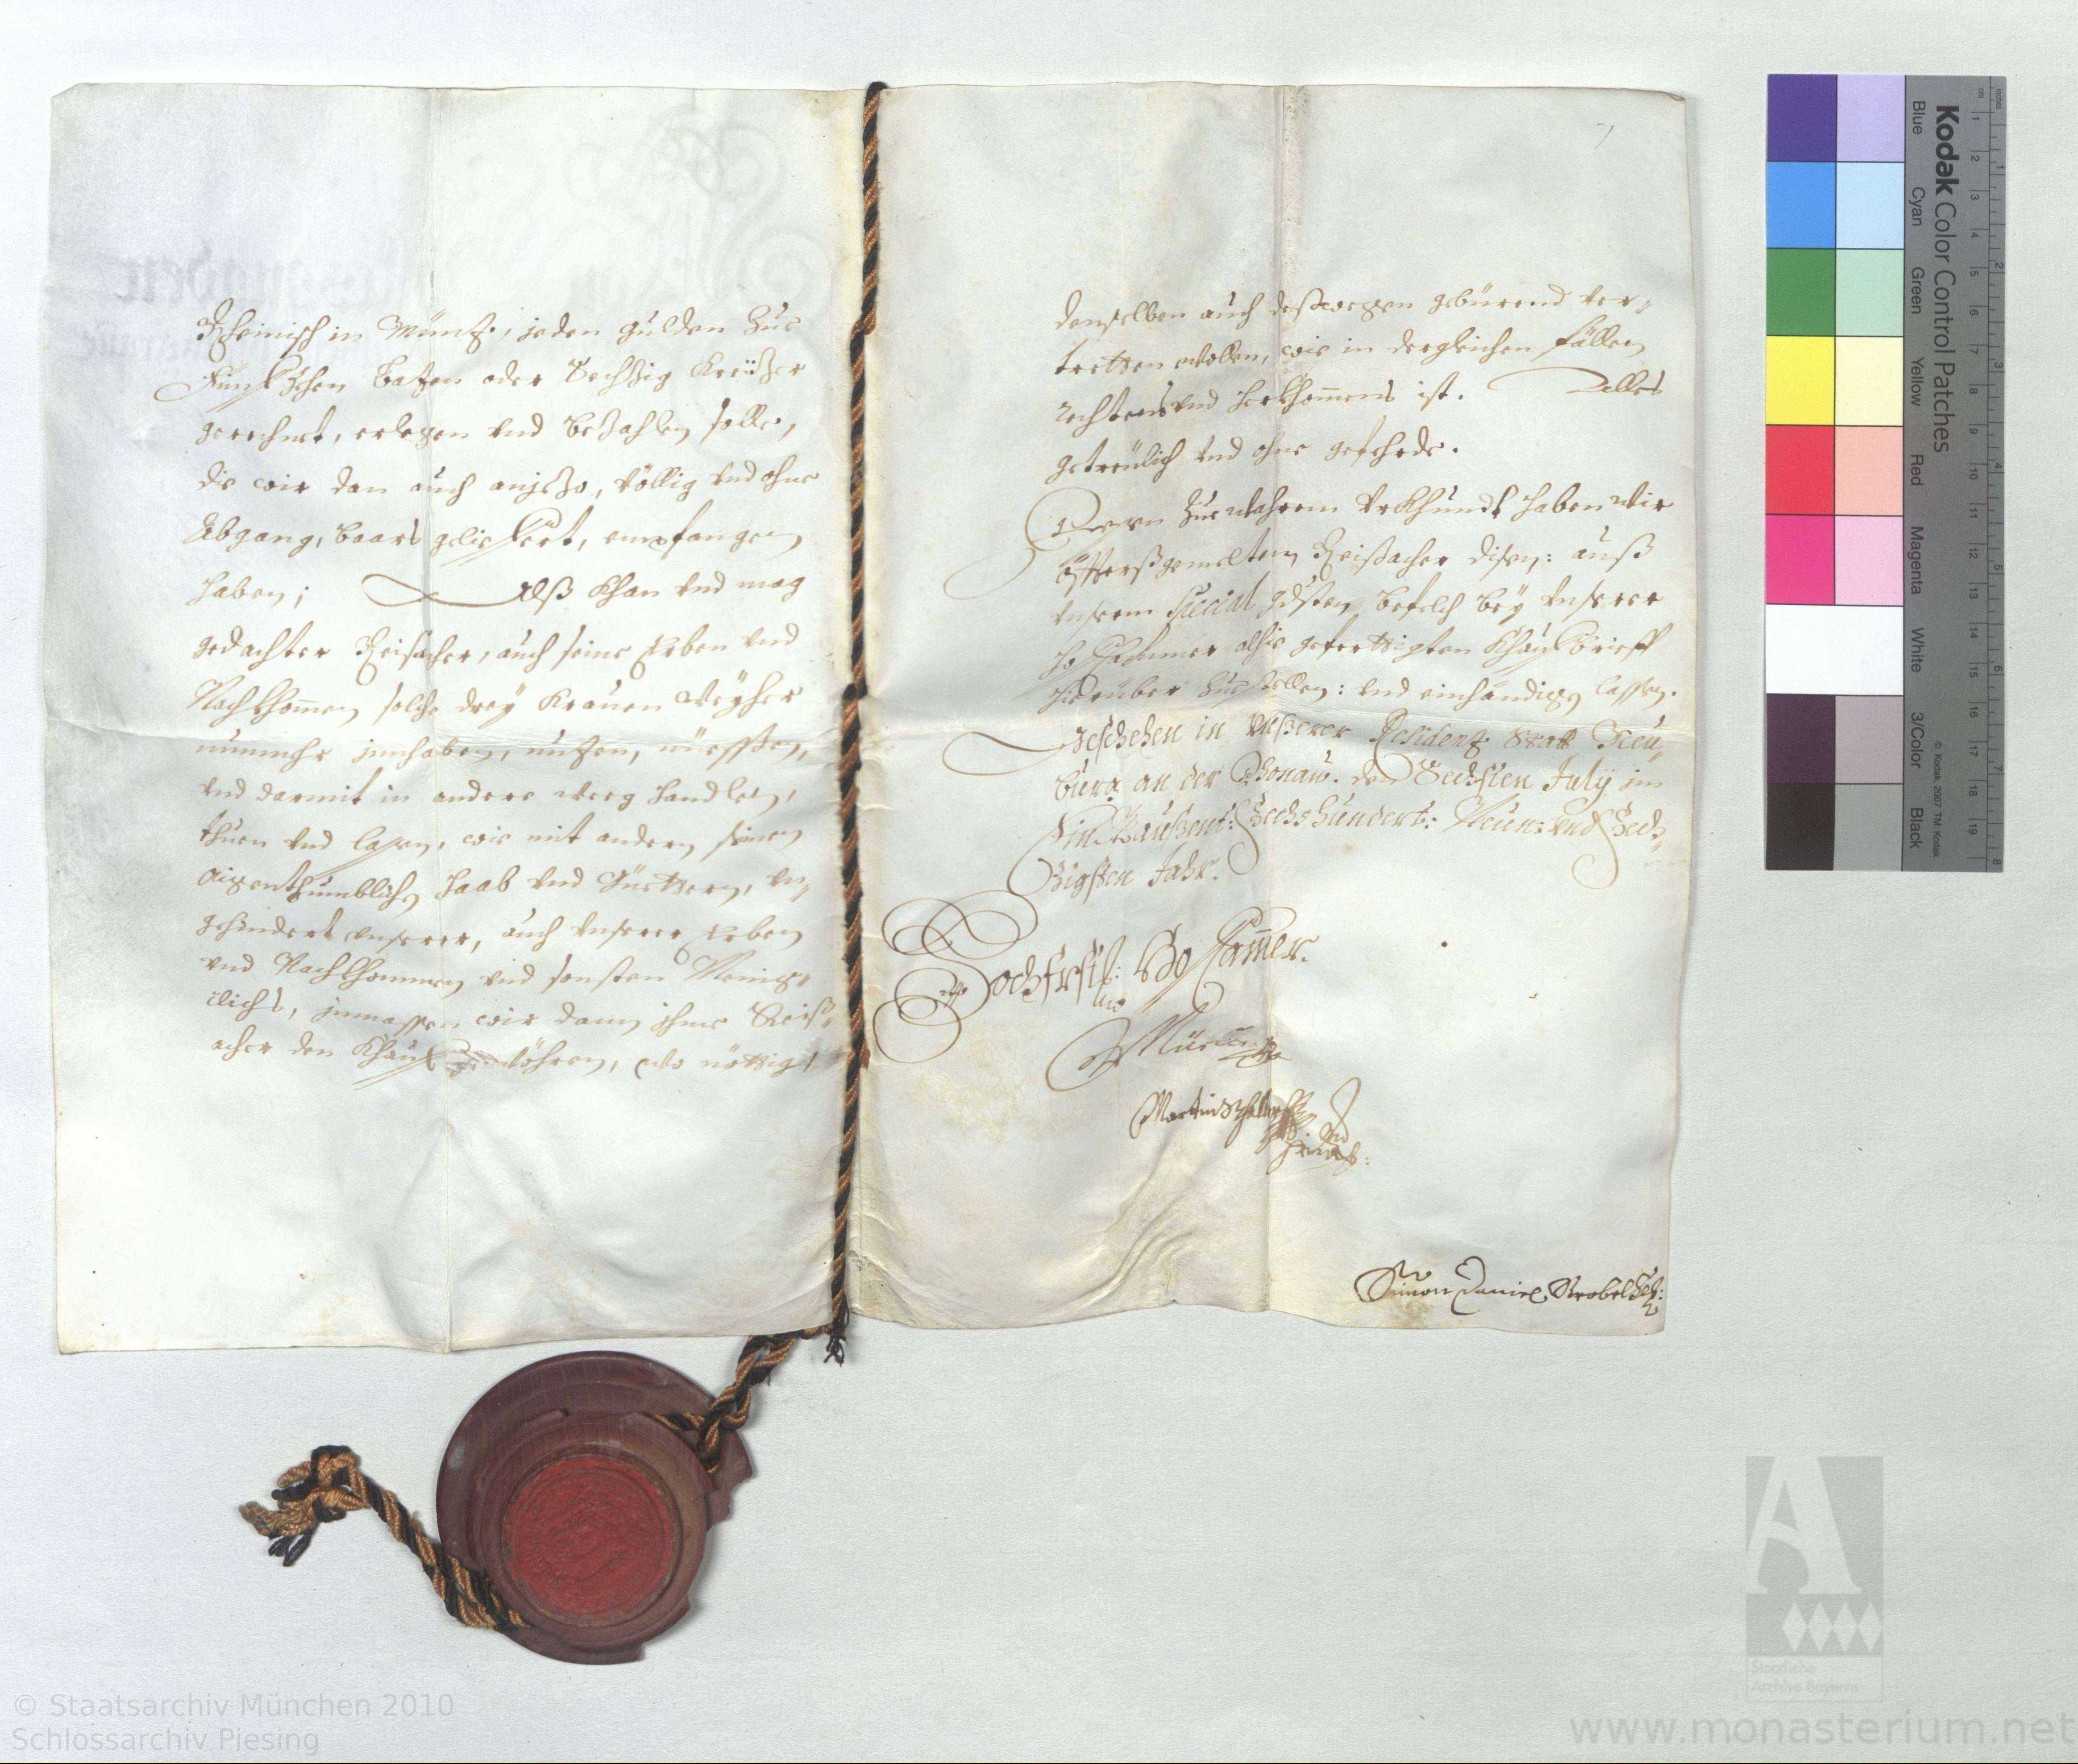 Rheinisch in Müntz, jeden gulden zue
Fünffzehen Batzen oder Sechzig Kreüzer
gerechnet, erlegen vnd bezahlen solle,
die wir dan auch anjezo, völlig vnd ohne
Abgang, baars gelieffert, empfangen
haben; Alß khan vnd mag
gedachter Reisacher, auch seine Erben vnd
Nachkhomen solche drey Weyher
nunmehr jnnhaben, nutzen, nüessen,
vnd darmit in andere weeg handlen,
thuen vnd lassen, wie mit andern seinen
aigenthumblichen Haab vnd Güettern, vn„
gehindert vnserer, auch vnserer Erben
vnd Nachkhommen vnd sonsten Menig„
clichs, jnmassen wir dann jhme Reiß„
acher den Khauff wöhren, wo nöttig,
denselben auch deßwegen gebürend ver„
tretten wollen, wie in dergleichen fällen
rechtens vnd herkhomens ist. Alles
getreülich vnd ohne geferde.
Dessen zue wahrem Vrkhundt haben wir
öffterßgemeltem Reisacher disen: auß
vnserm special gdsten befelch bey vnserer
hofCammer alhie gefertigten Khauffbrieff
hierüber zuestellen: vnd einhändigen lassen.
Geschehen in vnßerer Residentz Statt Neu„
burg an der Donaw. den Sechsten July jm
Ein Taußent: Sechshundert: Neun: vnd Sech„
zigsten Jahr.
Hochfrstl: Hof Camer.
Martin
Simon Daniel Strobel
Kodak Color Control Patches
Blue
Cyan
Green
Yellow
Red
Magenta
White
3/Color
Black
© Kodak, 2007 TM: Kodak
cm 1 2 3 4 5 6 7 8 9 10 11 12 13 14 15 16 17 18 19
inches 1 2 3 4 5 6 7 8
A
Staatliche
Archive Bayerns
© Staatsarchiv München 2010
Schlossarchiv Piesing
www.monasterium.net